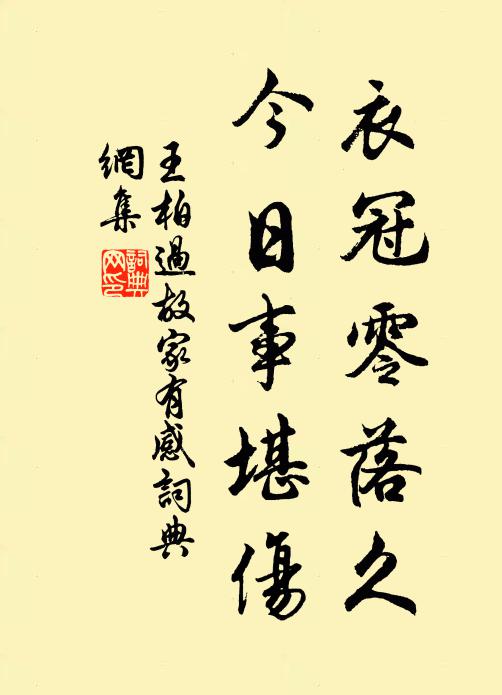 衣冠零落久
今日事堪傷
王柏過故家有感詞典
網集
詞典
网印